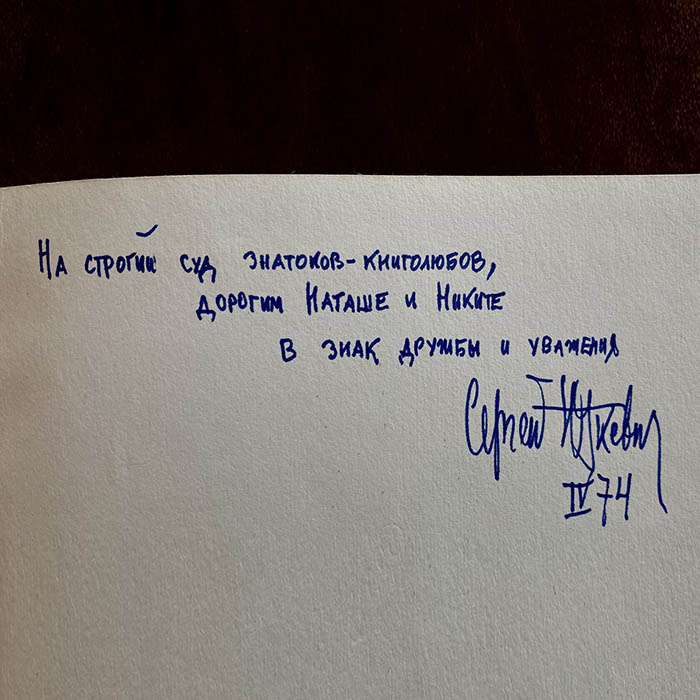 На строгий суд знатоков-книголюбов,
дорогим Наташе и Никите
в знак дружбы и уважения
Сергей Юткевич
IV 74